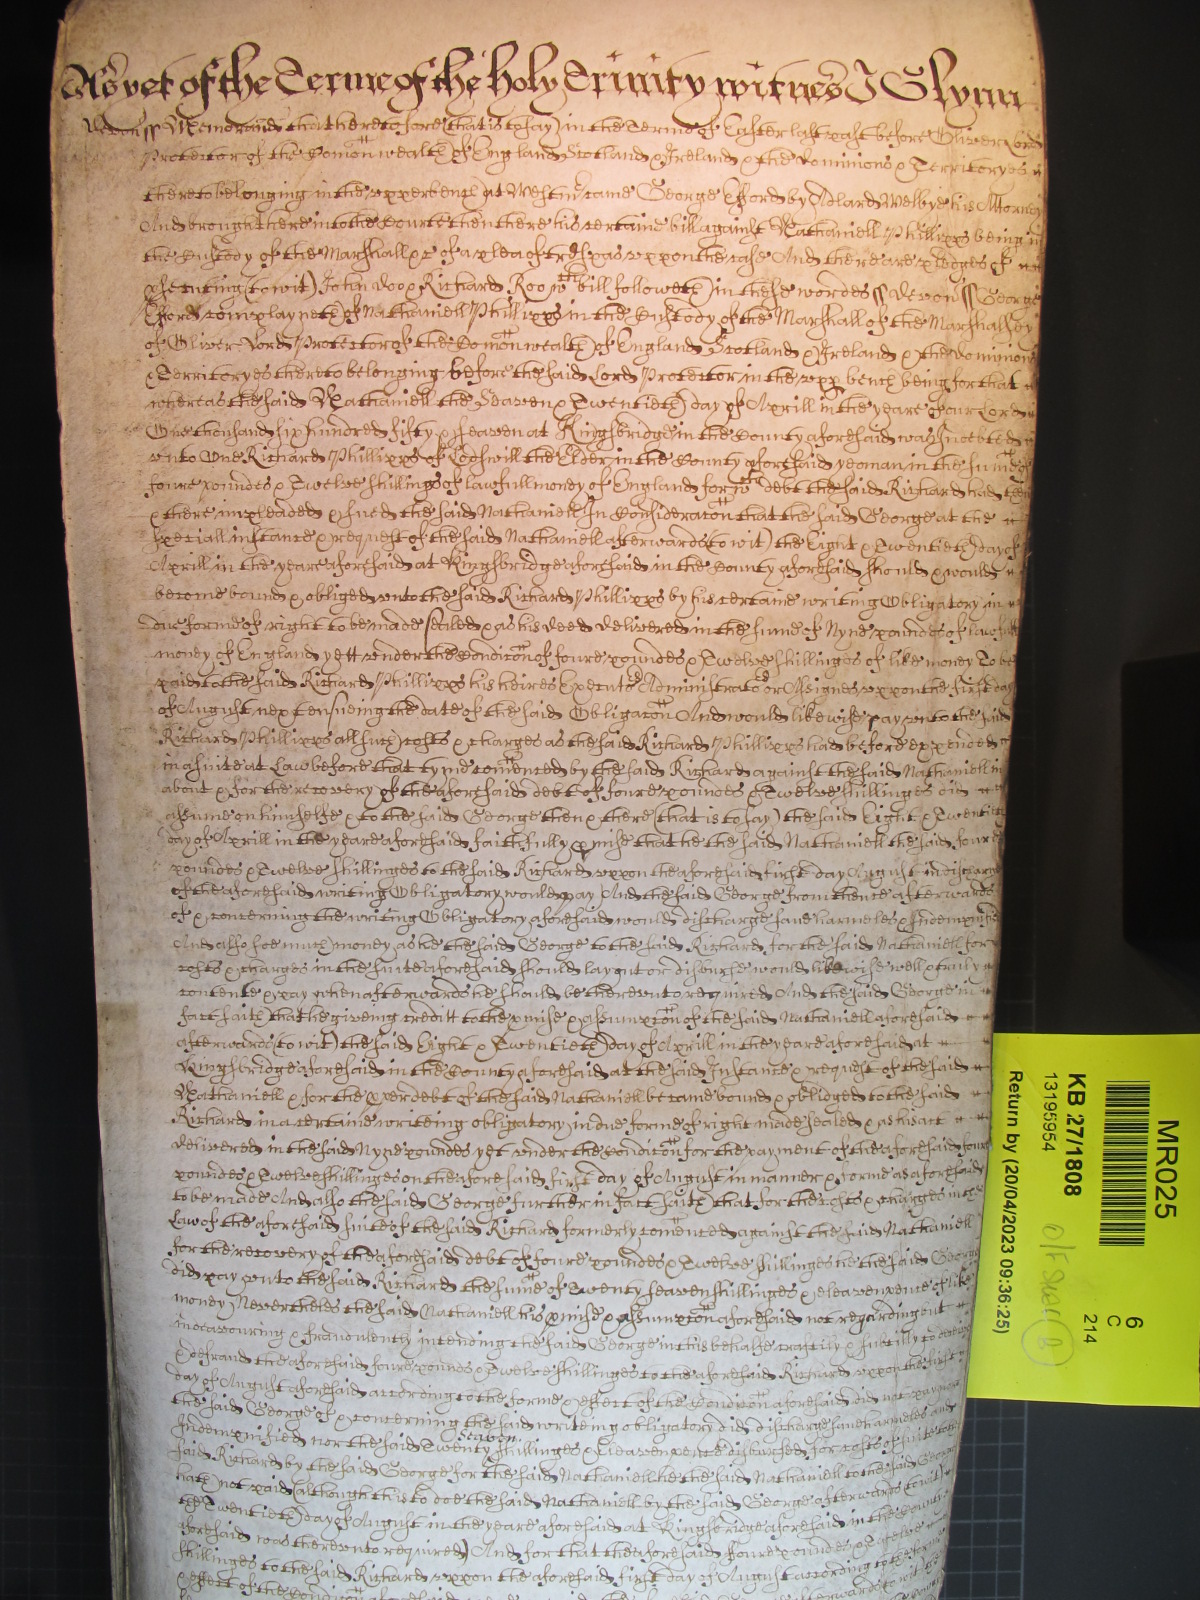 As yet of the Terme of the holy Trinity witnes J Glynn
Devon ss Memorand that heretofore (that is to say) in the Terme of Easter last past before Oliver Lord
Protector of the Comonwealth of England Scotland & Ireland & the Dominions & Territoryes
thereto belonging in the upper bench at Westm came George Efford by Adlard Welbye his Attorney
And brought here into the Courte then there his certaine bill against Nathaniell Phillipps being in
the Custody of the Marshall &c of a plea of trespas uppon the case And there are pledges of
psecuting (to wit) John Doo & Richard Roo wch bill followeth in these wordes ss Devon ss George
Efford complayneth of Nathaniell Phillipps in the Custody of the Marshall of the Marshalsey
of Oliver Lord Protector of the Comonwealth of England Scotland & Ireland & the Dominions
& Territoryes thereto belonging before the said Lord Protector in the upp bench being for that
whereas the said Nathaniell the Seaven & Twentieth day of Aprill in the yeare of our Lord
One thousand six hundred fifty & seaven at Kingsbridge in the County aforesaid was Indebted
unto One Richard Phillipps of the Elder in the County aforesaid yeoman in the sume of
foure poundes & Twelve shillings of lawfull money of England for wch debt the said Richard had then
& there impleaded & sued the said Nathaniell In Consideracon that the said George at the
speciall instance & request of the said Nathaniell afterwards (to wit) the Eight & Twentieth day of
Aprill in the yeare aforesaid at Kingsbridge aforesaid in the County aforesaid should & would
become bound & obliged unto the said Richard Phillipps by his certaine writing Obligatory in
due forme of right to be made sealed & as his deed delivered in the sume of Nyne poundes of lawfull
money of England yett under the Condicon of foure poundes & Twelve shillinges of like money To be
paid to the said Richard Phillipps his heires Executors Administrators or Assignes uppon the first day
of August next ensueing the date of the said Obligacon And would likewise pay unto the said
Richard Phillipps all such costs & charges as the said Richard Phillipps had before expended
in a suite at Law before that tyme comenced by the said Richard against the said Nathaniell in
about & for the recovery of the aforesaid debt of foure poundes & Twelve shillinges did
assume on himselfe & to the said George then & there (that is to say) the said Eight & Twentieth
day of Aprill in the yeare aforesaid faithfully pmise that he the said Nathaniell the said foure
poundes & Twelve shillinges to the said Richard uppon the aforesaid first day August in discharge
of the aforesaid writing Obligatory would pay And the said George from thence afterwards
of & concerning the writing Obligatory aforesaid would discharge save harmeles & Indempnified
And also soe much money as he the said George to the said Richard for the said Nathaniell for
costs & charges in the suite aforesaid should lay out or disburse would likewise well & truly
content & pay when afterwards he should be thereunto required And the said George in
fact saith that he giveing creditt to the pmise & assumpcon of the said Nathaniell aforesaid
afterwards (to wit) the said Eight & Twentieth day of Aprill in the yeare aforesaid at
Kingsbridge aforesaid in the County aforesaid at the said Instance & request of the said
Nathaniell & for the pper debt of the said Nathaniell became bound & obliged to the said
Richard in a certaine writeing obligatory in due forme of right made sealed & as his act
delivered in the said Nyne poundes yet under the Condicon for the payment of the aforesaid foure
poundes & Twelve shillinges on the aforesaid first day of August in manner & forme as aforesaid
to be made And also the said George further in fact saith that for the costs & charges in the
Law of the aforesaid suite of the said Richard formerly comenced against the said Nathaniell
for the recovery of the aforesaid debt of foure poundes & Twelve shillinges he the said George
did pay unto the said Richard the sume of Twenty seaven shillinges & eleaven pence of like
money Nevertheles the said Nathaniell his pmise & assumpcon aforesaid not regarding but
indeavouring & fraudulently intending the said George in this behalfe craftily & subtilly to deceive
& defraud the aforesaid foure poundes & Twelve shillinges to the aforesaid Richard uppon the first
day of August aforesaid according to the forme & effect of the Condicon aforesaid did not pay nor
the said George of & concerning the said writeing obligatory did discharge save harmeles and
Indempnified nor the said Twenty seaven shillinges & Eleaven pence disbursed for costs of suite
said Richard by the said George for the said Nathaniell he the said Nathaniell to the said George
hath not paid (although this to doe the said Nathaniell by the said George afterwards (to wit)
the Twentieth day of August in the yeare aforesaid at Kingsbridge aforesaid in the County
aforesaid was thereunto required) And for that the aforesaid foure poundes & Twelve
shillinges to the said Richard uppon the aforesaid first day of August according to the forme
& effect of the Condicon aforesaid
MR025
6
C
214
KB 27/1808
13195954
Return by (20/04/2023 09:36:25)